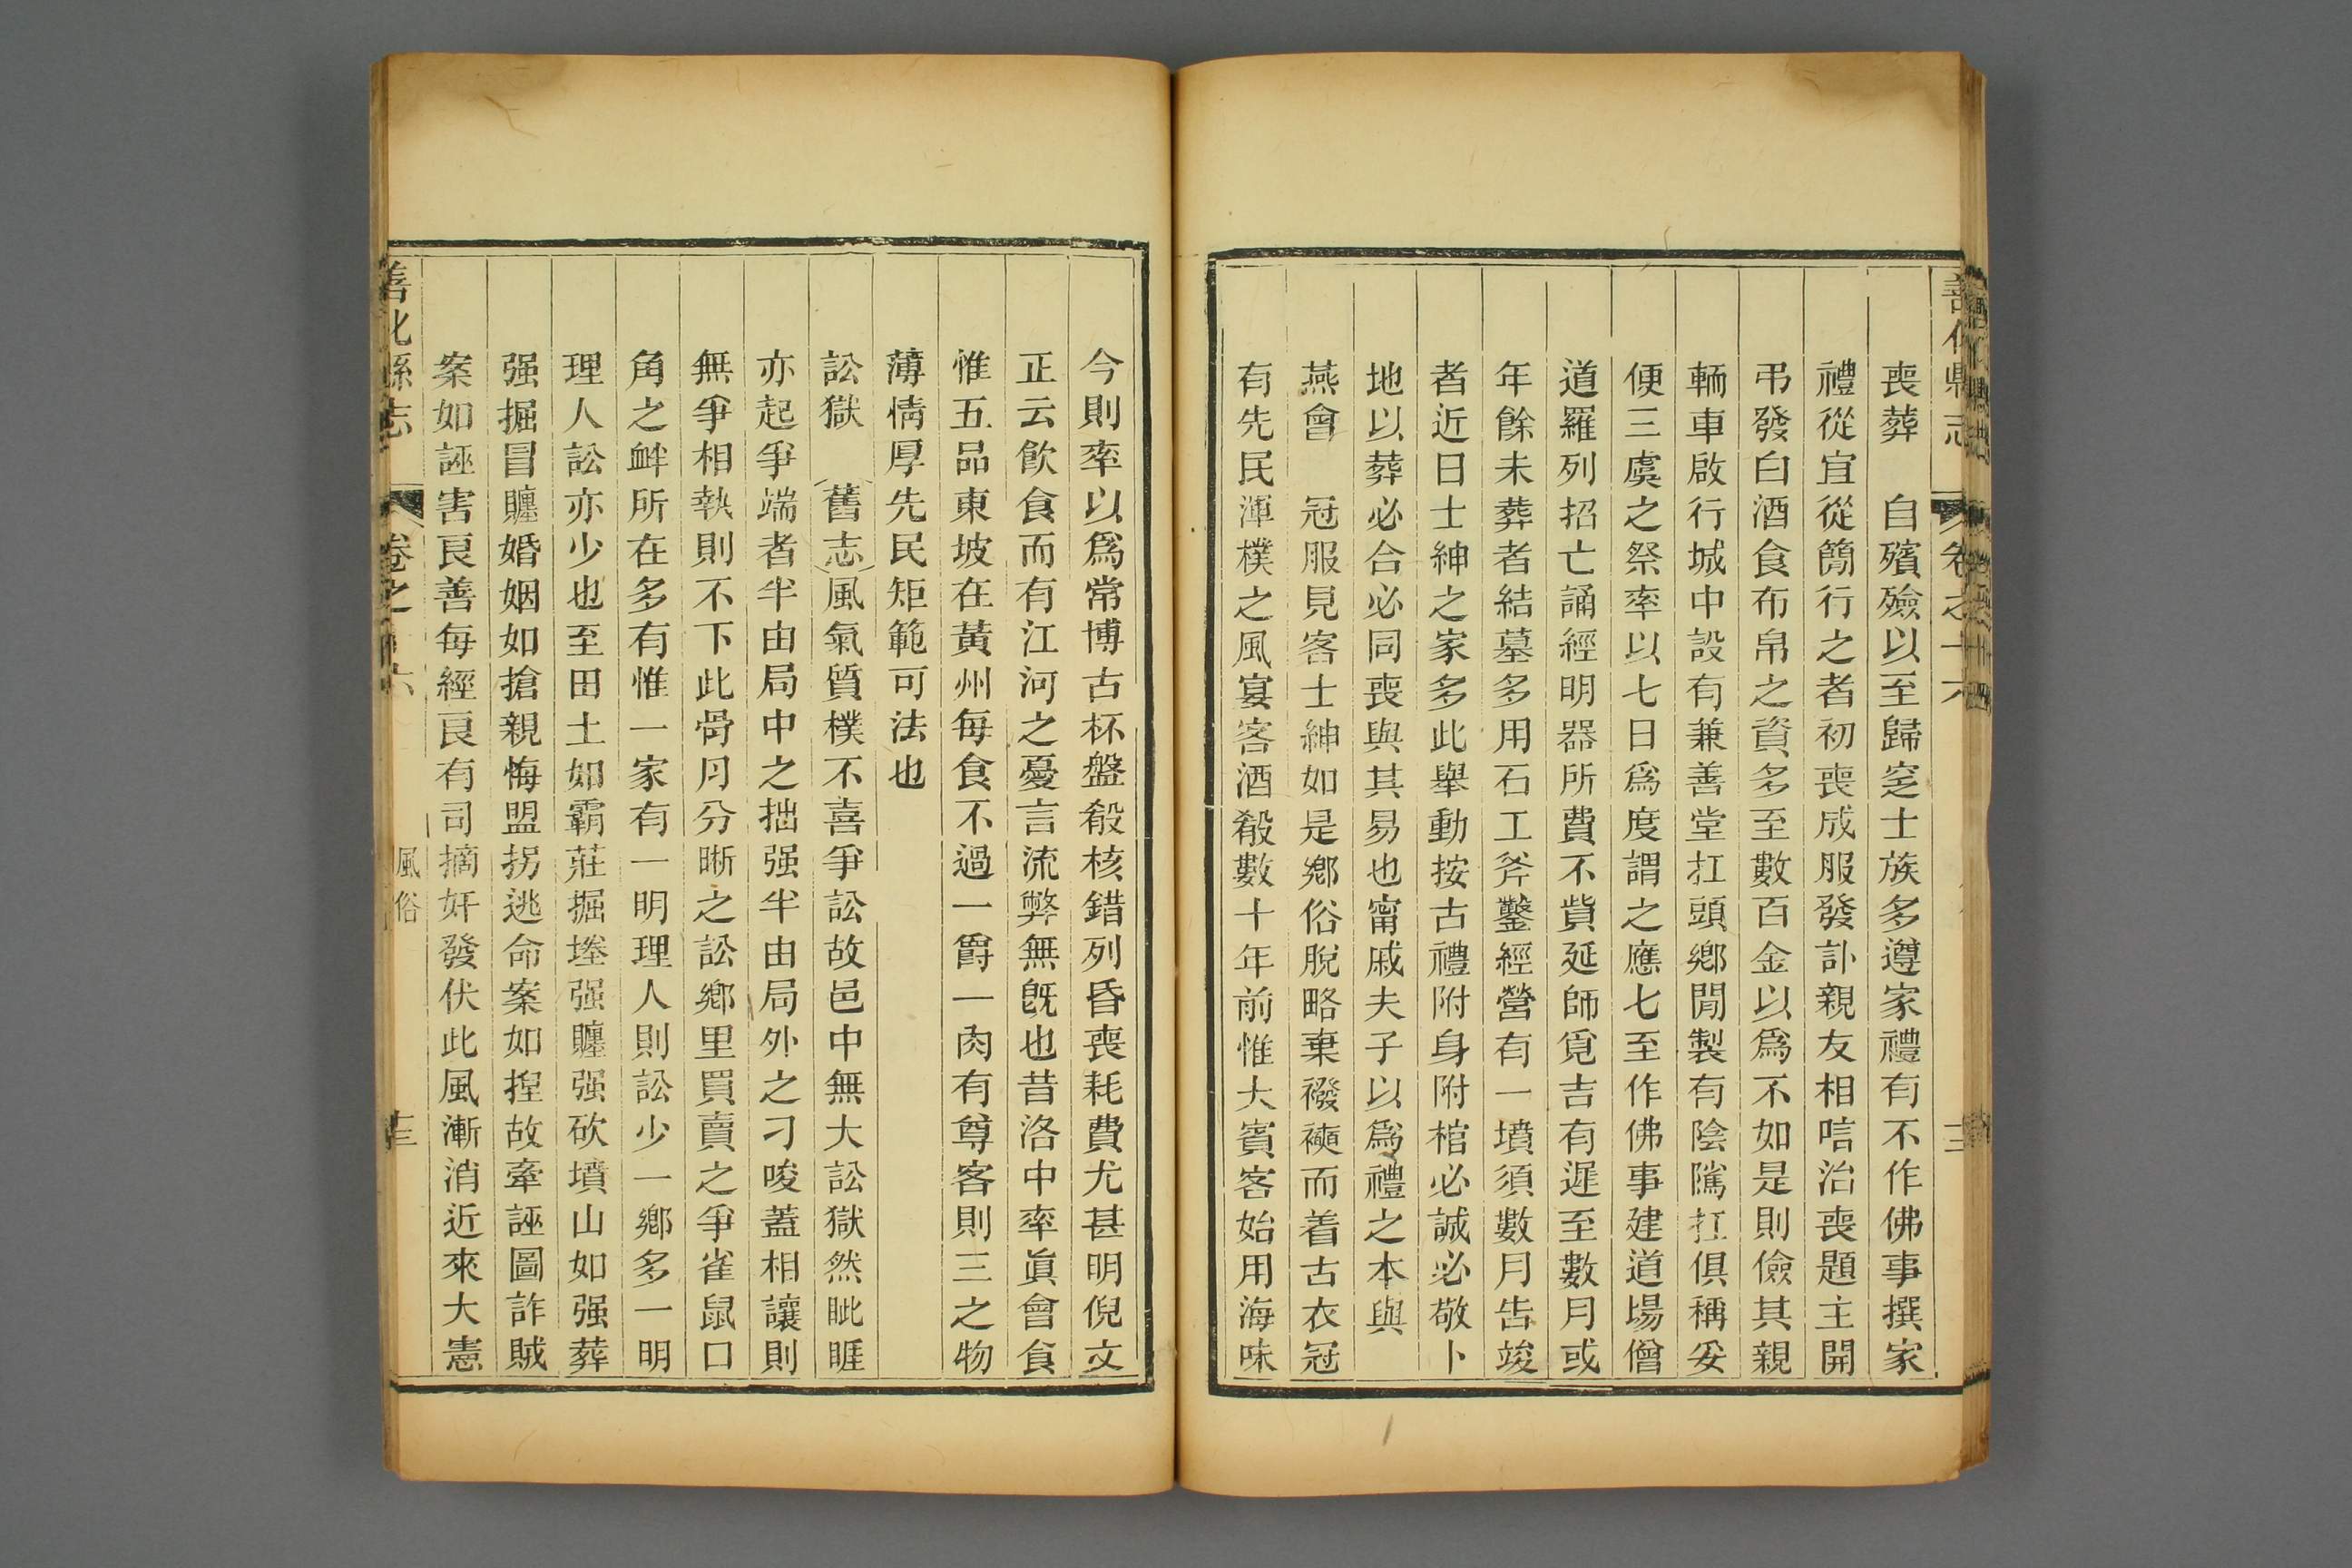 喪葬　自殯殮以至歸窆士族多遵家禮有不作佛事撰家
禮從宜從簡行之者初喪成服發訃親友相唁治喪題主開
弔發白酒食布帛之資多至數百金以爲不如是則儉其親
輀車啟行城中設有兼善堂扛頭鄉閒製有陰隲扛俱稱妥
便三虞之祭率以七日爲度謂之應七至作佛事建道場僧
道羅列招亡誦經明器所費不貲延師覓吉有遲至數月或
年餘未葬者結墓多用石工斧鑿經營有一墳須數月告竣
者近日士紳之家多此舉動按古禮附身附棺必誠必敬卜
地以葬必合必同喪與其易也甯戚夫子以爲禮之本與
燕會　冠服見客士紳如是鄉俗脫略棄襏襫而着古衣冠
有先民渾樸之風宴客酒殽數十年前惟大賓客始用海味
今則率以爲常博古杯盤殽核錯列昏喪耗費尤甚明倪文
正云飲食而有江河之憂言流弊無旣也昔洛中率眞會食
惟五品東坡在黃州每食不過一爵一肉有尊客則三之物
薄情厚先民矩範可法也
訟獄　舊志風氣質樸不喜爭訟故邑中無大訟獄然眦睚
亦起爭端者半由局中之拙强半由局外之刁唆蓋相讓則
無爭相執則不下此骨月分晰之訟鄉里買賣之爭雀鼠口
角之衅所在多有惟一家有一明理人則訟少一鄉多一明
理人訟亦少也至田土如霸莊掘塋强贌强砍墳山如强葬
强掘冒贌婚姻如搶親悔盟拐逃命案如揑故牽誣圖詐賊
案如誣害良善每經良有司摘奸發伏此風漸消近來大憲
善化縣志
卷之
風俗